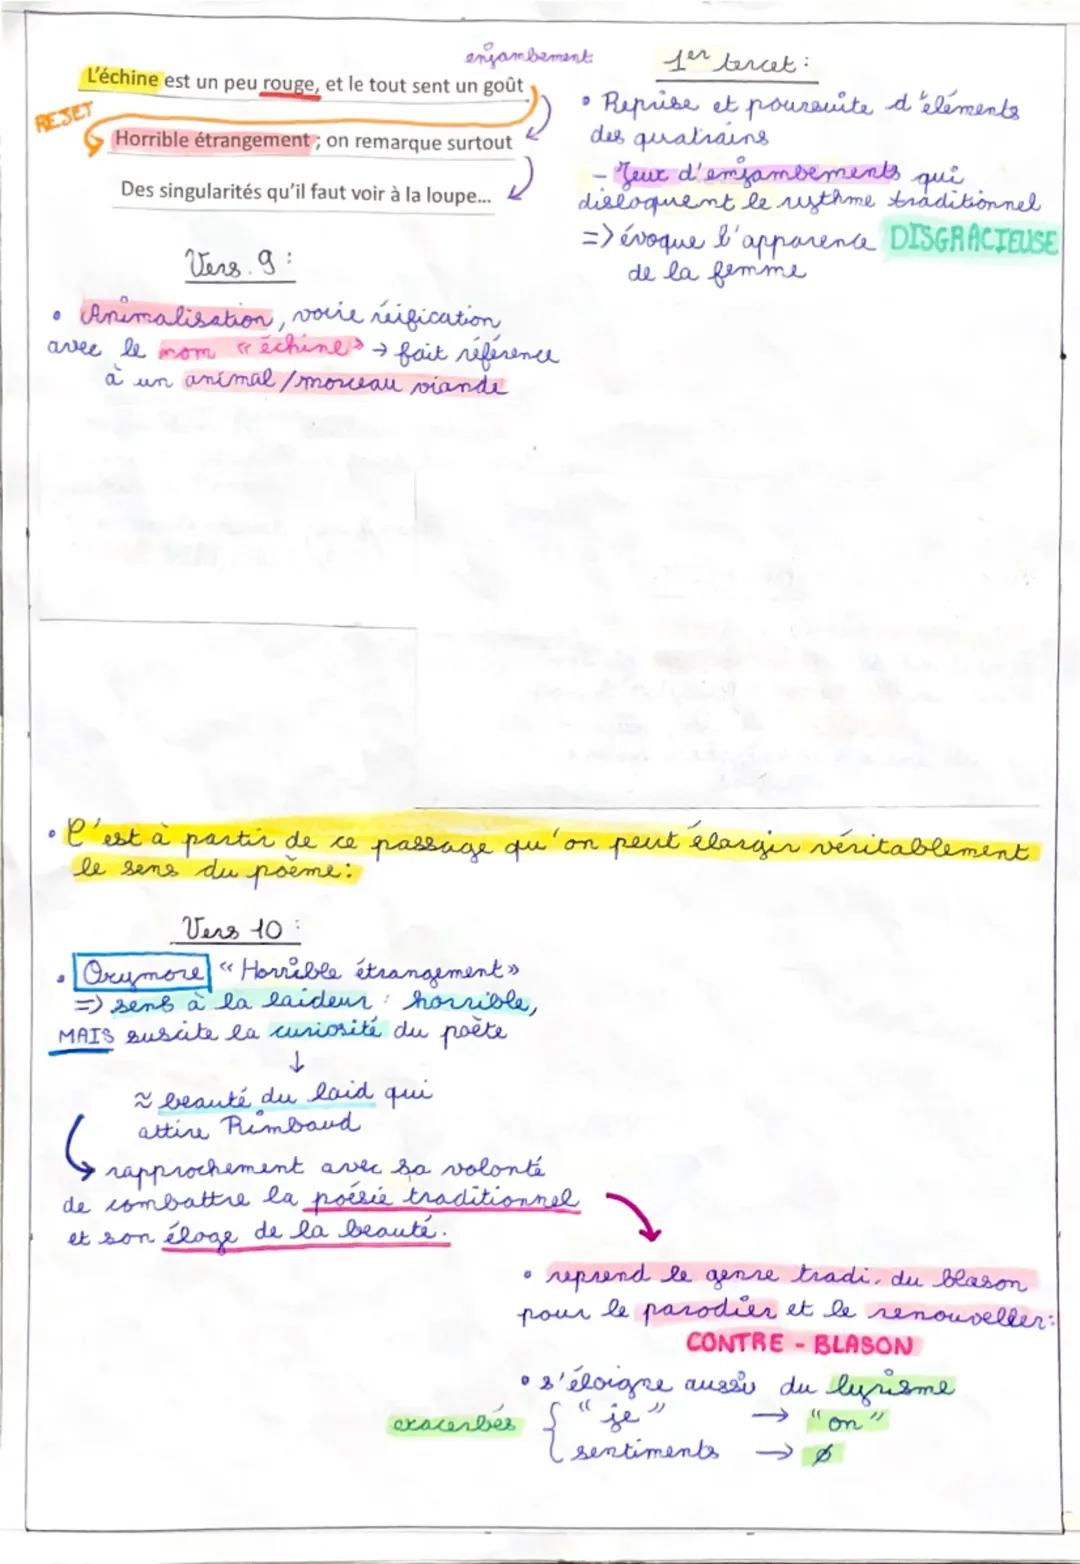 enjambement
L'échine est un peu rouge, et le tout sent un goût
REJET
Horrible étrangement ; on remarque surtout
Des singularités qu'il faut voir à la loupe...
1er tercet :
• Reprise et poursuite d'éléments
des quatrains
- Jeux d'enjambements qui
disloquent le rythme traditionnel
=> évoque l'apparence DISGRACIEUSE
de la femme
Vers 9 :
• Animalisation, voire réification
avec le nom « échine » → fait référence
à un animal/morceau viande
• C'est à partir de ce passage qu'on peut élargir véritablement
le sens du poème :
Vers 10 :
• Oxymore « Horrible étrangement »
=> sens à la laideur : horrible,
MAIS suscite la curiosité du poète
↓
≈ beauté du laid qui
attire Rimbaud
rapprochement avec sa volonté
de combattre la poésie traditionnel
et son éloge de la beauté.
• reprend le genre tradi. du blason
pour le parodier et le renouveller :
CONTRE - BLASON
• s'éloigne aussi du lyrisme
exacerbés { "je" → "on"
sentiments → ∅